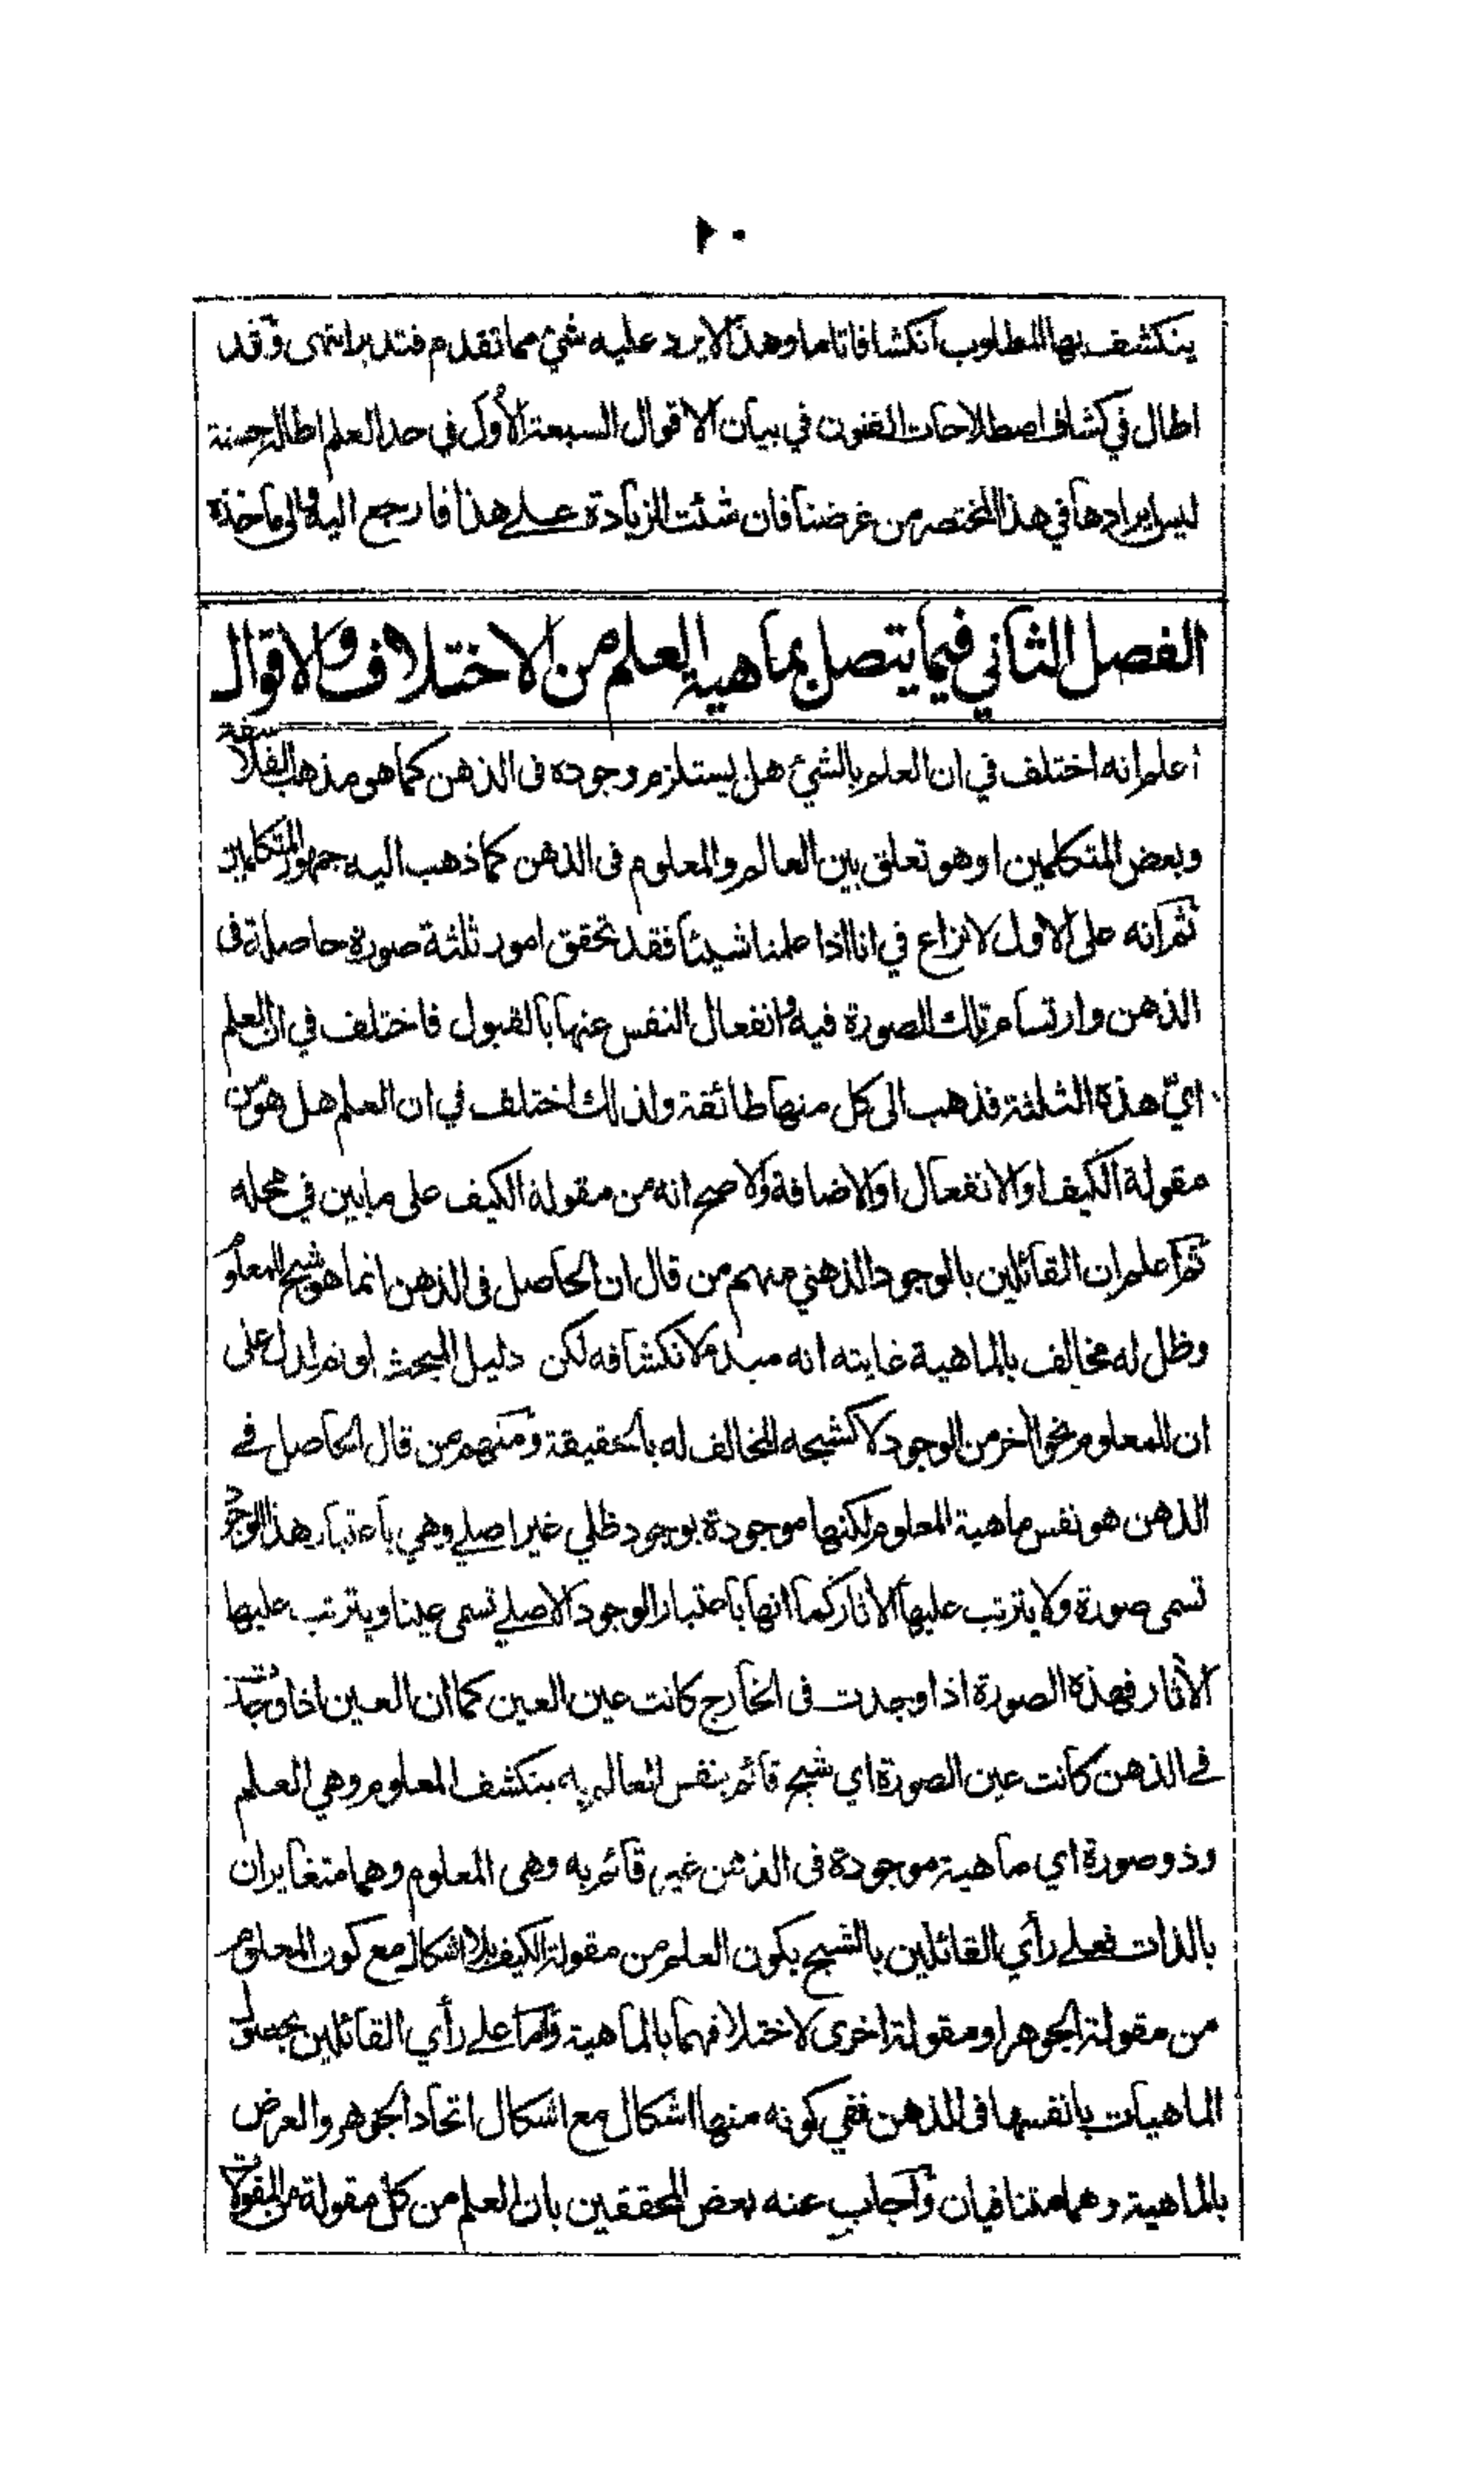 ١٠
ينكشف بها المطلوب انكشافا تاما وهذا لا يرد عليه شئ مما تقدم فتدبر انتهى وقد
اطال في كشاف اصطلاحات الفنون في بيان الاقوال السبعة الأول في حد العلم اطالة حسنة
ليس ايرادها في هذا المختصر من غرضنا فان شئت الزيادة على هذا فارجع اليه والى مآخذه
الفصل الثاني فيما يتصل بماهية العلم من الاختلاف والاقوال
اعلم انه اختلف في ان العلم بالشيء هل يستلزم وجوده فى الذهن كما هو مذهب الفلاسفة
وبعض المتكلمين او هو تعلق بين العالم والمعلوم فى الذهن كما ذهب اليه جمهور المتكلمين
ثم انه على الاول لا نزاع في انا اذا علمنا شيئا فقد تحقق امور ثلثة صورة حاصلة فى
الذهن وارتسام تلك الصورة فيه وانفعال النفس عنها بالقبول فاختلف في ان العلم
ايّ هذه الثلثة فذهب الى كل منها طائفة ولذلك اختلف في ان العلم هل هو من
مقولة الكيف او الانفعال او الاضافة والاصح انه من مقولة الكيف على ما بين في محله
ثم اعلم ان القائلين بالوجود الذهني منهم من قال ان الحاصل فى الذهن انما هو شبح المعلوم
وظل له مخالف بالماهية غايته انه مبدء لانكشافه لكن دليل المبحث لو تم لدل على
ان للمعلوم نحوا آخر من الوجود لا كشبحه المخالف له بالحقيقة ومنهم من قال الحاصل في
الذهن هو نفس ماهية المعلوم لكنها موجودة بوجود ظلي غير اصلي وهي باعتبار هذا الوجود
تسمى صورة ولا يترتب عليها الآثار كما انها باعتبار الوجود الاصلي تسمى عينا ويترتب عليها
الآثار فهذه الصورة اذا وجدت فى الخارج كانت عين العين كما ان العين اذا وجدت
في الذهن كانت عين الصورة اي شبح قائم بنفس العالم به ينكشف المعلوم وهي العلم
وذو صورة اي ماهية موجودة فى الذهن غير قائم به وهى المعلوم وهما متغايران
بالذات فعلى رأي القائلين بالشبح يكون العلم من مقولة الكيف بلا اشكال مع كون المعلوم
من مقولة الجوهر او مقولة اخرى لاختلافهما بالماهية واما على رأي القائلين بحصول
الماهيات بانفسها فى الذهن ففي كونه منها اشكال مع اشكال اتحاد الجوهر والعرض
بالماهية وهما متنافيان واجاب عنه بعض المحققين بان العلم من كل مقولة من المقولات